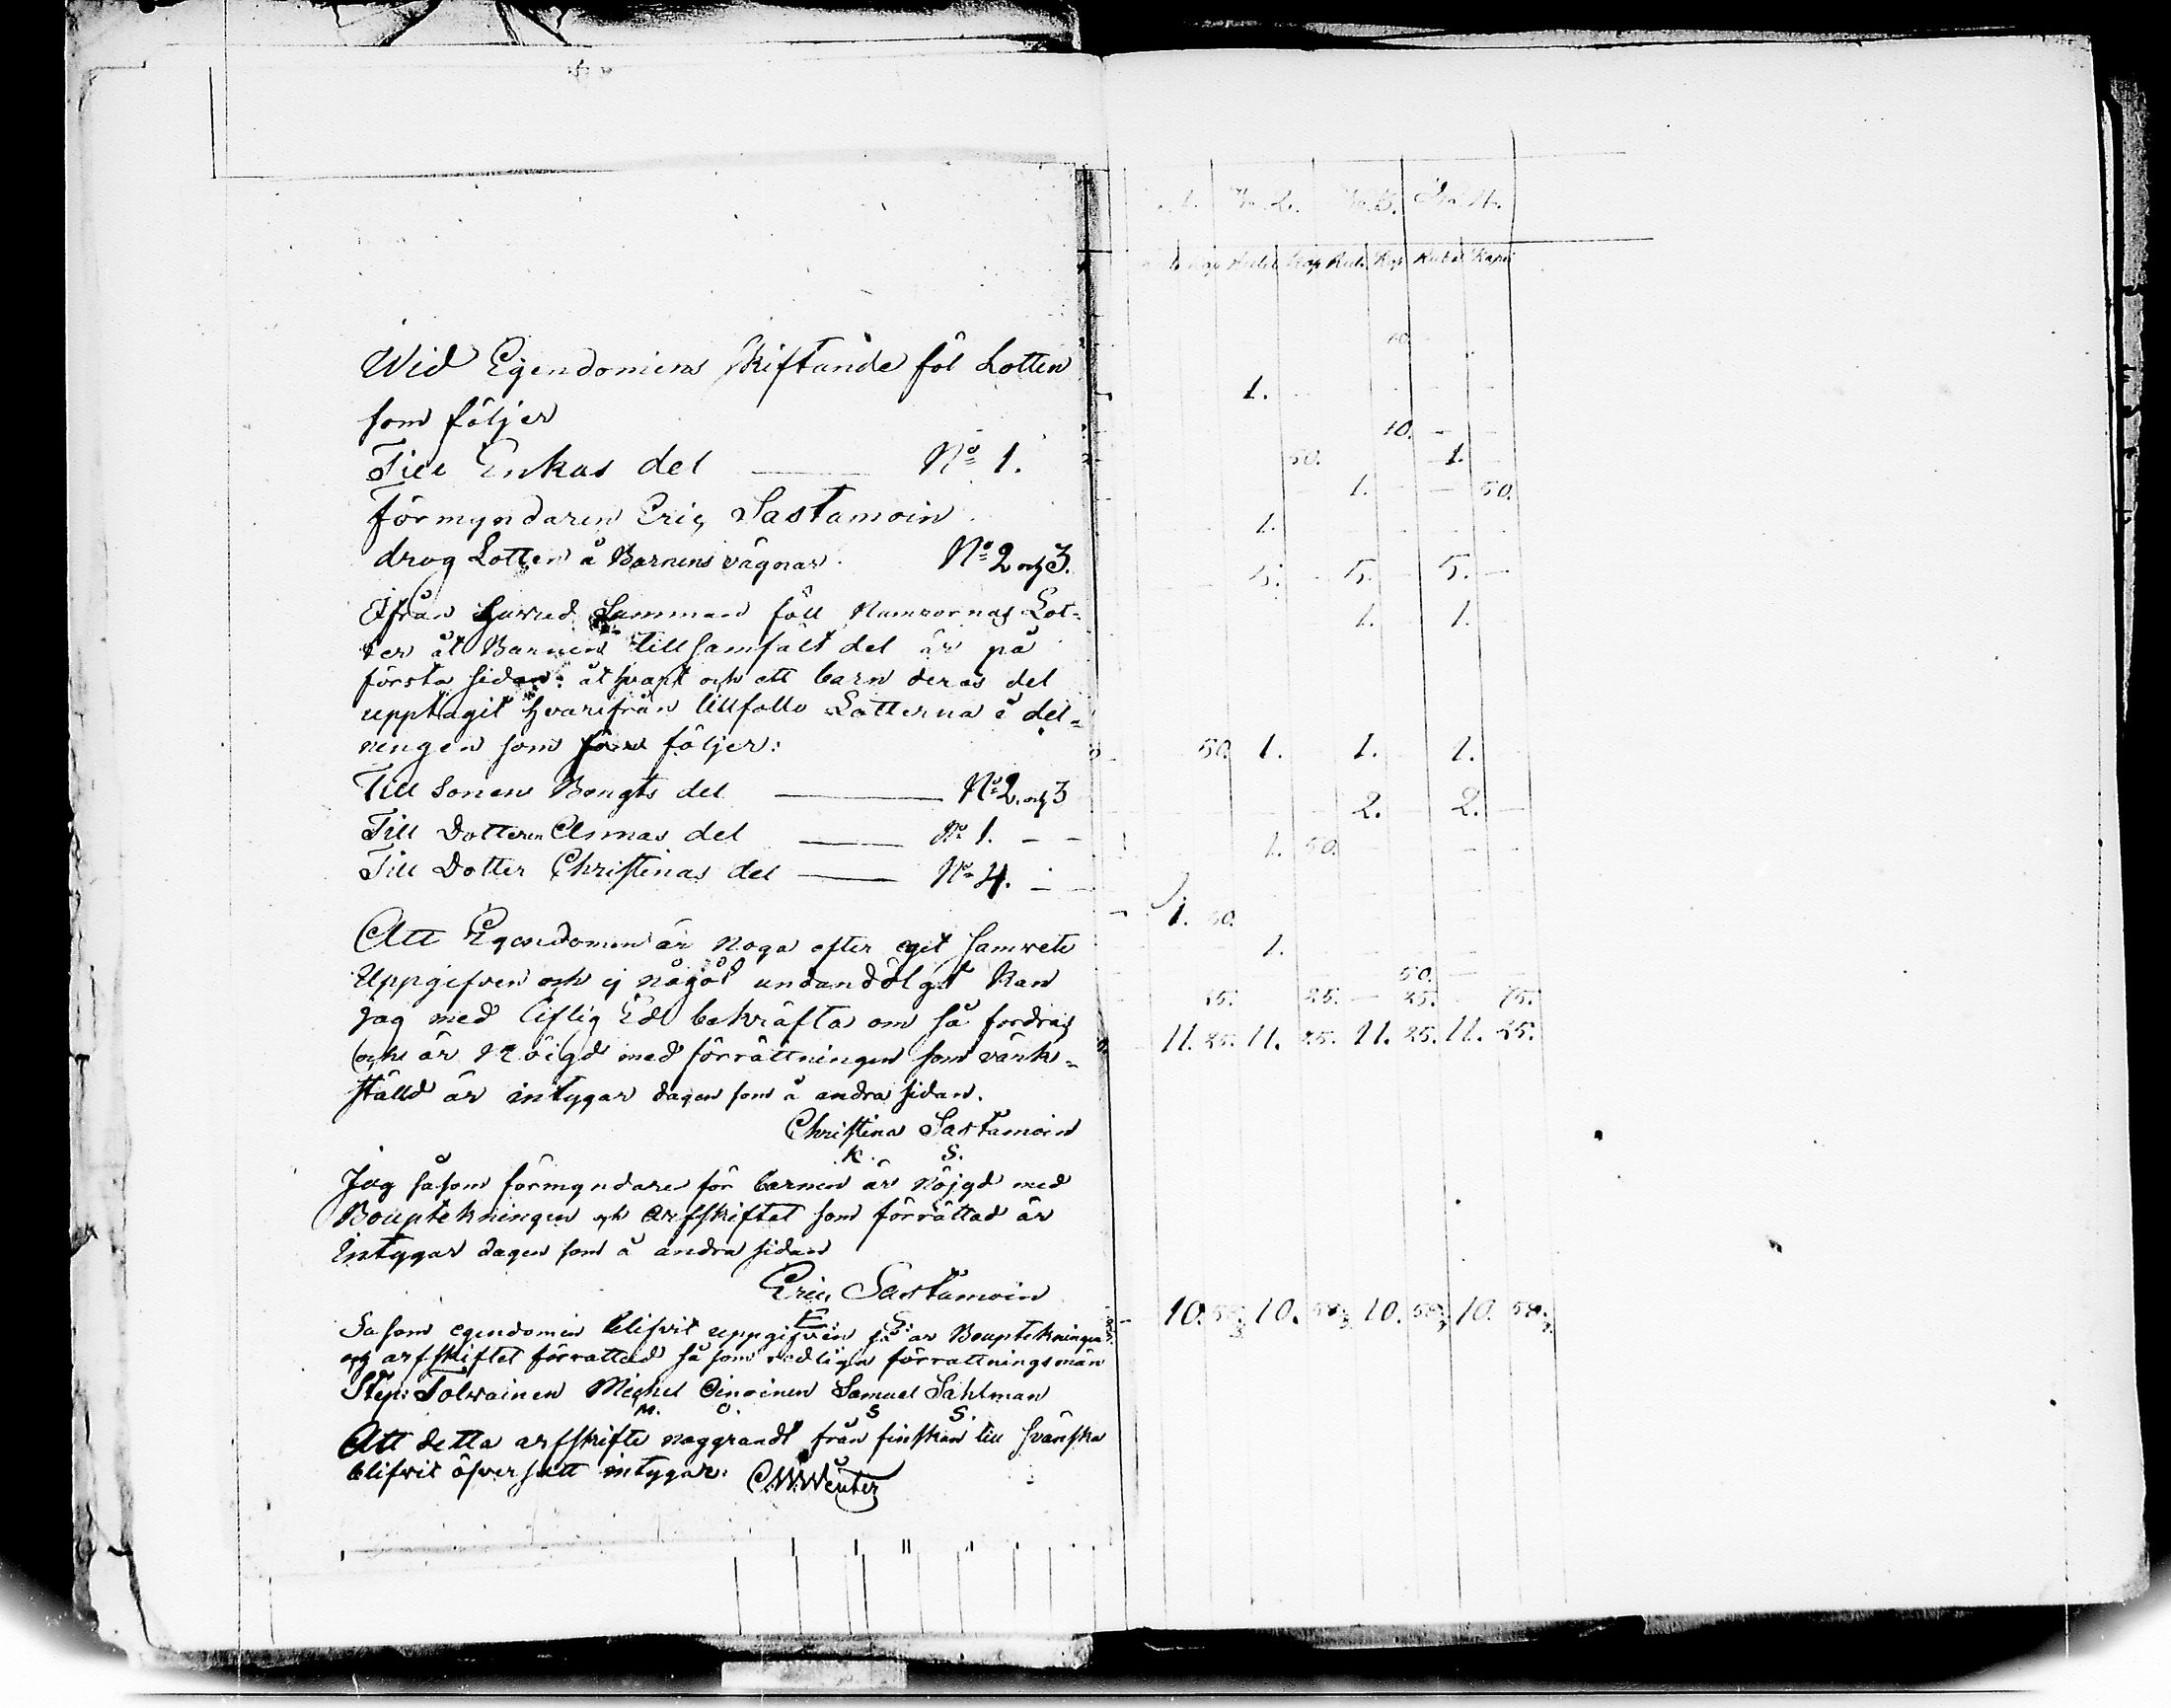 Wid Egendomens skiftande föl Lotten
som följer
Till Enkas del — No 1.
Förmyndaren Eric Sastamoin
drog Lotten å Barnens vägnar. No 2 och 3.
Ifrån Huvud Summan föll Numrornas Lot-
ter åt Barnens tillsamfält del är på
första sidan: åt hvart och ett barn deras del
upptagit hvarifrån tillfallo Lotterna i del-
ningen som följer:
Till sonens Bengts del — No 2. och 3
Till Dotteren Annas del — No 1. — —
Till Dotter Christinas del — No 4. — —
Att Egendomen är noga efter eget samvete
Uppgifven och ej något undandölgt kan
jag med liflig Ed bekräfta om så fordras
och är Nöigd med förrättningen som värk-
ställd är intygar dagen som å andra sidan.
Christina Sastamoin
K. S.
Jag såsom förmyndare för barnen är nöjgd med
Bouptekningen och arfskiftet som förrättad är
Intygar dagen som å andra sidan
Eric Sastamoin
E. S.
Så som egendomen blifvit uppgifven så är Bouptekningen
och arfskiftet förrattad så som redliga förrattningsmän
Step: Tolvainen Michel Oinoinen Samuel Sahlman
M. O. S S.
Att detta arfskifte noggrandt från finskan till svänska
blifvit öfversatt intygar: C.W. Wenter
No 2. No 3. No 4.
Kop Rubel Kop Rub. Kop Rubel Kopek
10.
1.
10. — —
50. 1.
1. — 50.
1.
5. 5. 5. —
1. 1.
50. 1. 1. 1.
2. 2. —
1. 50.
1. 50.
1.
50. —
25. 25. — 25. 75.
11. 25. 11. 25. 11. 25. 11. 25.
10. 58. 10. 58. 10. 58. 10. 58.